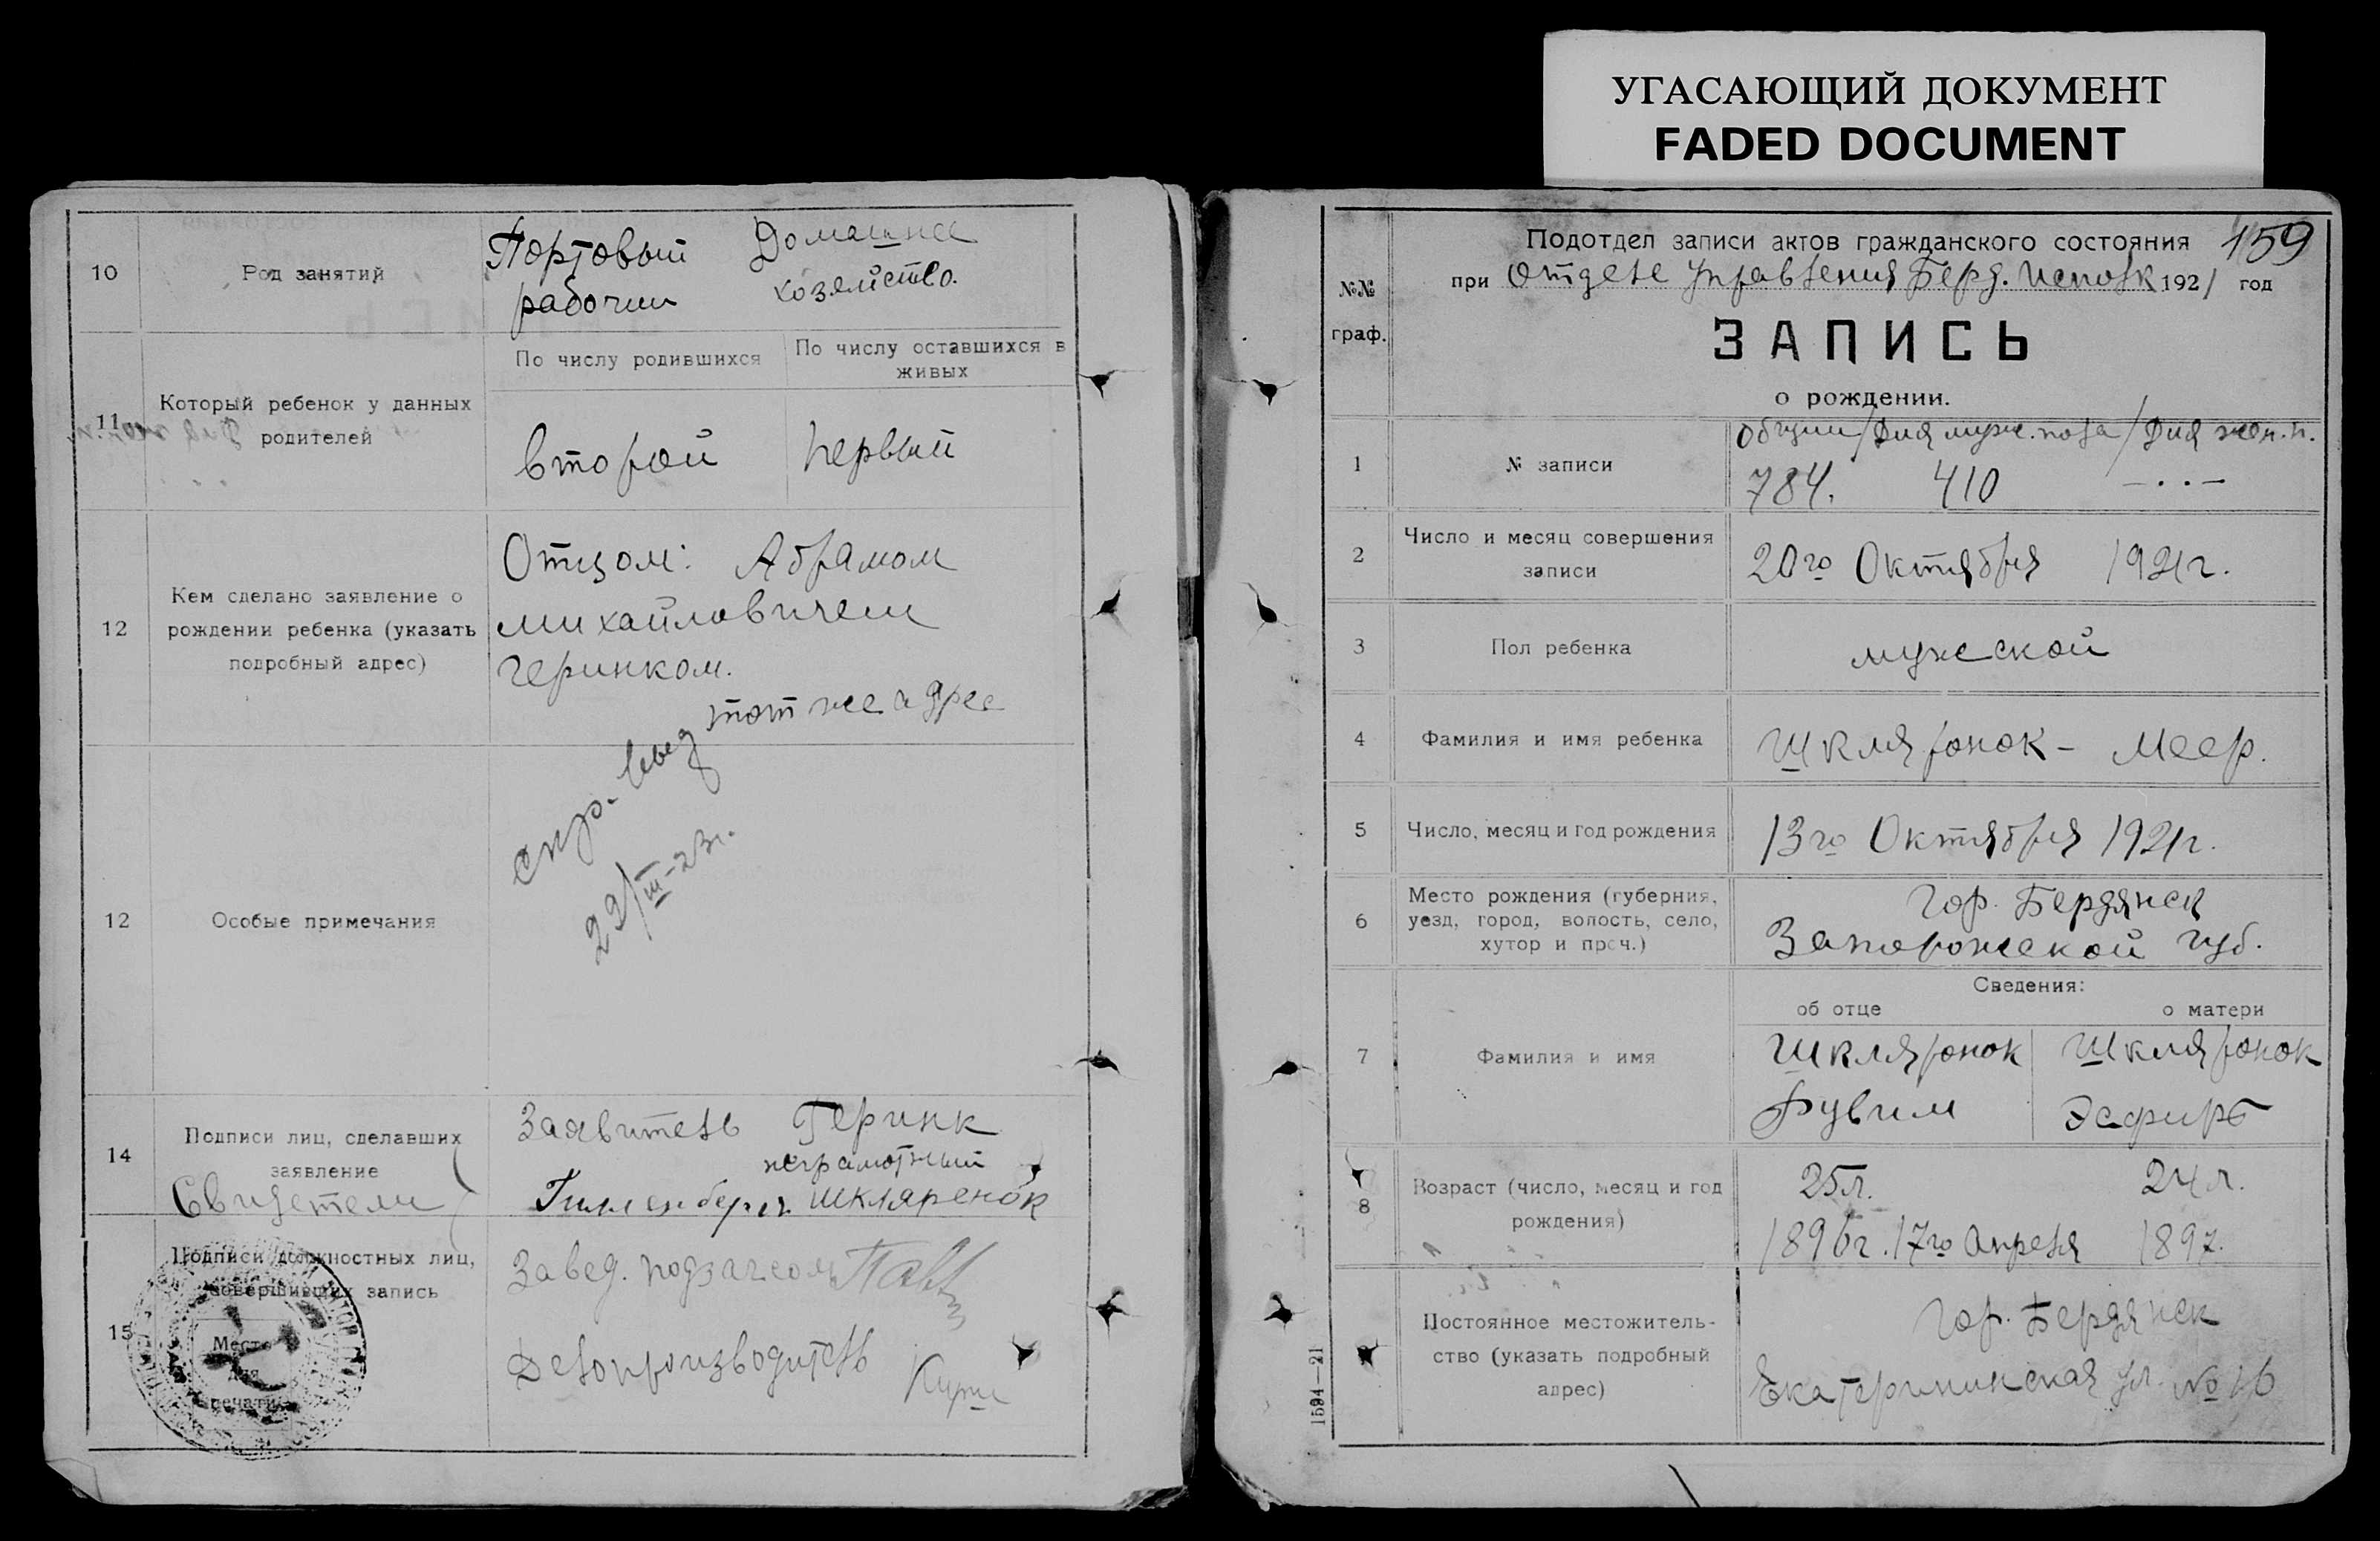 УГАСАЮЩИЙ ДОКУМЕНТ
FADED DOCUMENT
10
Род занятий
Портовый рабочий
Домашнее хозяйство.
11
Который ребенок у данных родителей
По числу родившихся
По числу оставшихся в живых
второй
первый
12
Кем сделано заявление о рождении ребенка (указать подробный адрес)
Отцом: Абрамом
Михайловичем
Геринком.
тот же адрес
12
Особые примечания
22/III-23г.
14
Подписи лиц, сделавших заявление
Свидетели
Заявитель Геринк
неграмотный
Гилленберг Шкляренок
15
Подписи должностных лиц, совершивших запись
Место для печати
Завед. подзагсом
Делопроизводитель
159
№№ граф.
Подотдел записи актов гражданского состояния
при Отделе Управления Берд. Исполк 1921 год
ЗАПИСЬ
о рождении.
1
№ записи
Общий/Для муж. пола/Для жен. п.
784. 410 —··—
2
Число и месяц совершения записи
20го Октября 1921г.
3
Пол ребенка
мужской
4
Фамилия и имя ребенка
Шкляронок - Меер.
5
Число, месяц и год рождения
13го Октября 1921г.
6
Место рождения (губерния, уезд, город, волость, село, хутор и проч.)
Гор. Бердянск
Запорожской губ.
Сведения:
об отце
о матери
7
Фамилия и имя
Шкляронок Рувим
Шкляронок Эсфирь
8
Возраст (число, месяц и год рождения)
25л. 24л.
1896г. 17го Апреля 1897.
Постоянное местожительство (указать подробный адрес)
Гор. Бердянск
Екатерининская ул. № 16
1594—21